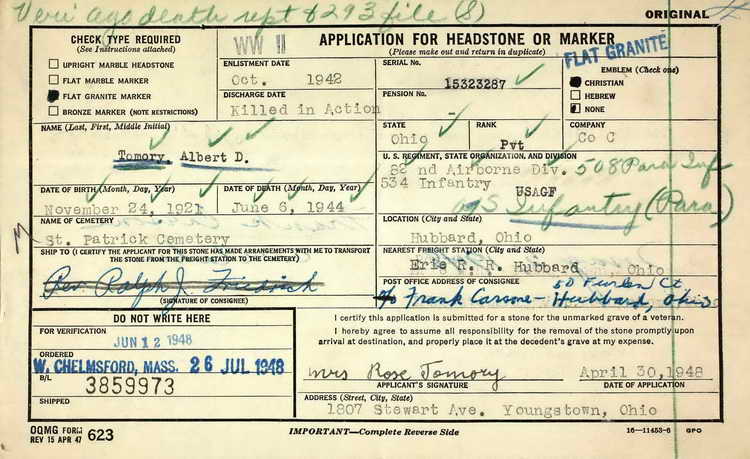 Veri ago death rept 8293 file (S)
ORIGINAL
CHECK TYPE REQUIRED
(See Instructions attached)
UPRIGHT MARBLE HEADSTONE
FLAT MARBLE MARKER
FLAT GRANITE MARKER
BRONZE MARKER (NOTE RESTRICTIONS)
WW II
APPLICATION FOR HEADSTONE OR MARKER
(Please make out and return in duplicate)
ENLISTMENT DATE
Oct. 1942
DISCHARGE DATE
Killed in Action
SERIAL No.
15323287
PENSION No.
-
FLAT GRANITE
EMBLEM (Check one)
CHRISTIAN
HEBREW
NONE
NAME (Last, First, Middle Initial)
Tomory, Albert D.
STATE
Ohio
RANK
Pvt
COMPANY
Co C
U. S. REGIMENT, STATE ORGANIZATION, AND DIVISION
82 nd Airborne Div. 508 Para Inf
534 Infantry
USAGF
Infantry (Para)
DATE OF BIRTH (Month, Day, Year)
November 24, 1921
DATE OF DEATH (Month, Day, Year)
June 6, 1944
NAME OF CEMETERY
St. Patrick Cemetery
LOCATION (City and State)
Hubbard, Ohio
SHIP TO (I CERTIFY THE APPLICANT FOR THIS STONE HAS MADE ARRANGEMENTS WITH ME TO TRANSPORT
THE STONE FROM THE FREIGHT STATION TO THE CEMETERY)
Rev Ralph J. Friedrich
(SIGNATURE OF CONSIGNEE)
NEAREST FREIGHT STATION (City and State)
Erie R. R. Hubbard, Ohio
POST OFFICE ADDRESS OF CONSIGNEE
50 Ct
% Frank Carsone - Hubbard, Ohio
DO NOT WRITE HERE
FOR VERIFICATION
JUN 12 1948
ORDERED
W. CHELMSFORD, MASS. 26 JUL 1948
B/L
3859973
SHIPPED
I certify this application is submitted for a stone for the unmarked grave of a veteran.
I hereby agree to assume all responsibility for the removal of the stone promptly upon
arrival at destination, and properly place it at the decedent's grave at my expense.
Mrs Rose Tomory
April 30, 1948
APPLICANT'S SIGNATURE
DATE OF APPLICATION
ADDRESS (Street, City, State)
1807 Stewart Ave. Youngstown, Ohio
OQMG FORM
REV 15 APR 47 623
IMPORTANT—Complete Reverse Side
16—11453-6 GPO